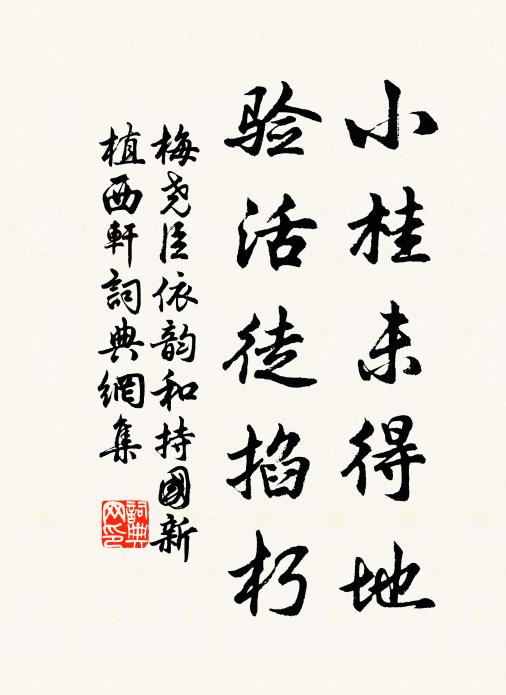 小桂未得地
验活徒掐朽
梅尧臣依韵和持國新
植西軒詞典網集
詞典网印